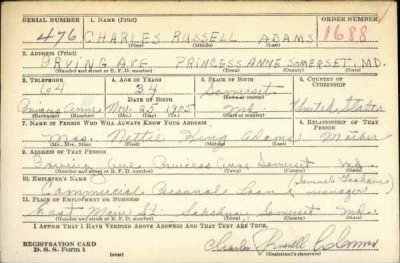 SERIAL NUMBER 1. NAME (Print) ORDER NUMBER
476 CHARLES RUSSELL ADAMS 1688
(First) (Middle) (Last)
2. ADDRESS (Print)
IRVING AVE PRINCESS ANNE, SOMERSET, MD.
(Number and street or R. F. D. number) (Town) (County) (State)
3. TELEPHONE 4. AGE IN YEARS 5. PLACE OF BIRTH 6. COUNTRY OF CITIZENSHIP
64 34 Somerset
DATE OF BIRTH
Princess Anne Nov. 25 1905 Md. United States
(Exchange) (No.) (Mo.) (Day) (Yr.) (State or country)
7. NAME OF PERSON WHO WILL ALWAYS KNOW YOUR ADDRESS 8. RELATIONSHIP OF THAT PERSON
Mrs. Nettie King Adams Mother
(Mr., Mrs., Miss) (First) (Middle) (Last)
9. ADDRESS OF THAT PERSON
Irving Ave Princess Anne Somerset Md.
(Number and street or R. F. D. number) (Town) (County) (State)
10. EMPLOYER'S NAME
Commercial Personal Loan manager)
11. PLACE OF EMPLOYMENT OR BUSINESS
East Main St. Salisbury Somerset Md.
(Number and street or R. F. D. number) (Town) (County) (State)
I AFFIRM THAT I HAVE VERIFIED ABOVE ANSWERS AND THAT THEY ARE TRUE.
REGISTRATION CARD
D. S. S. Form 1 (over) Charles Russell Adams
(Registrant's signature)